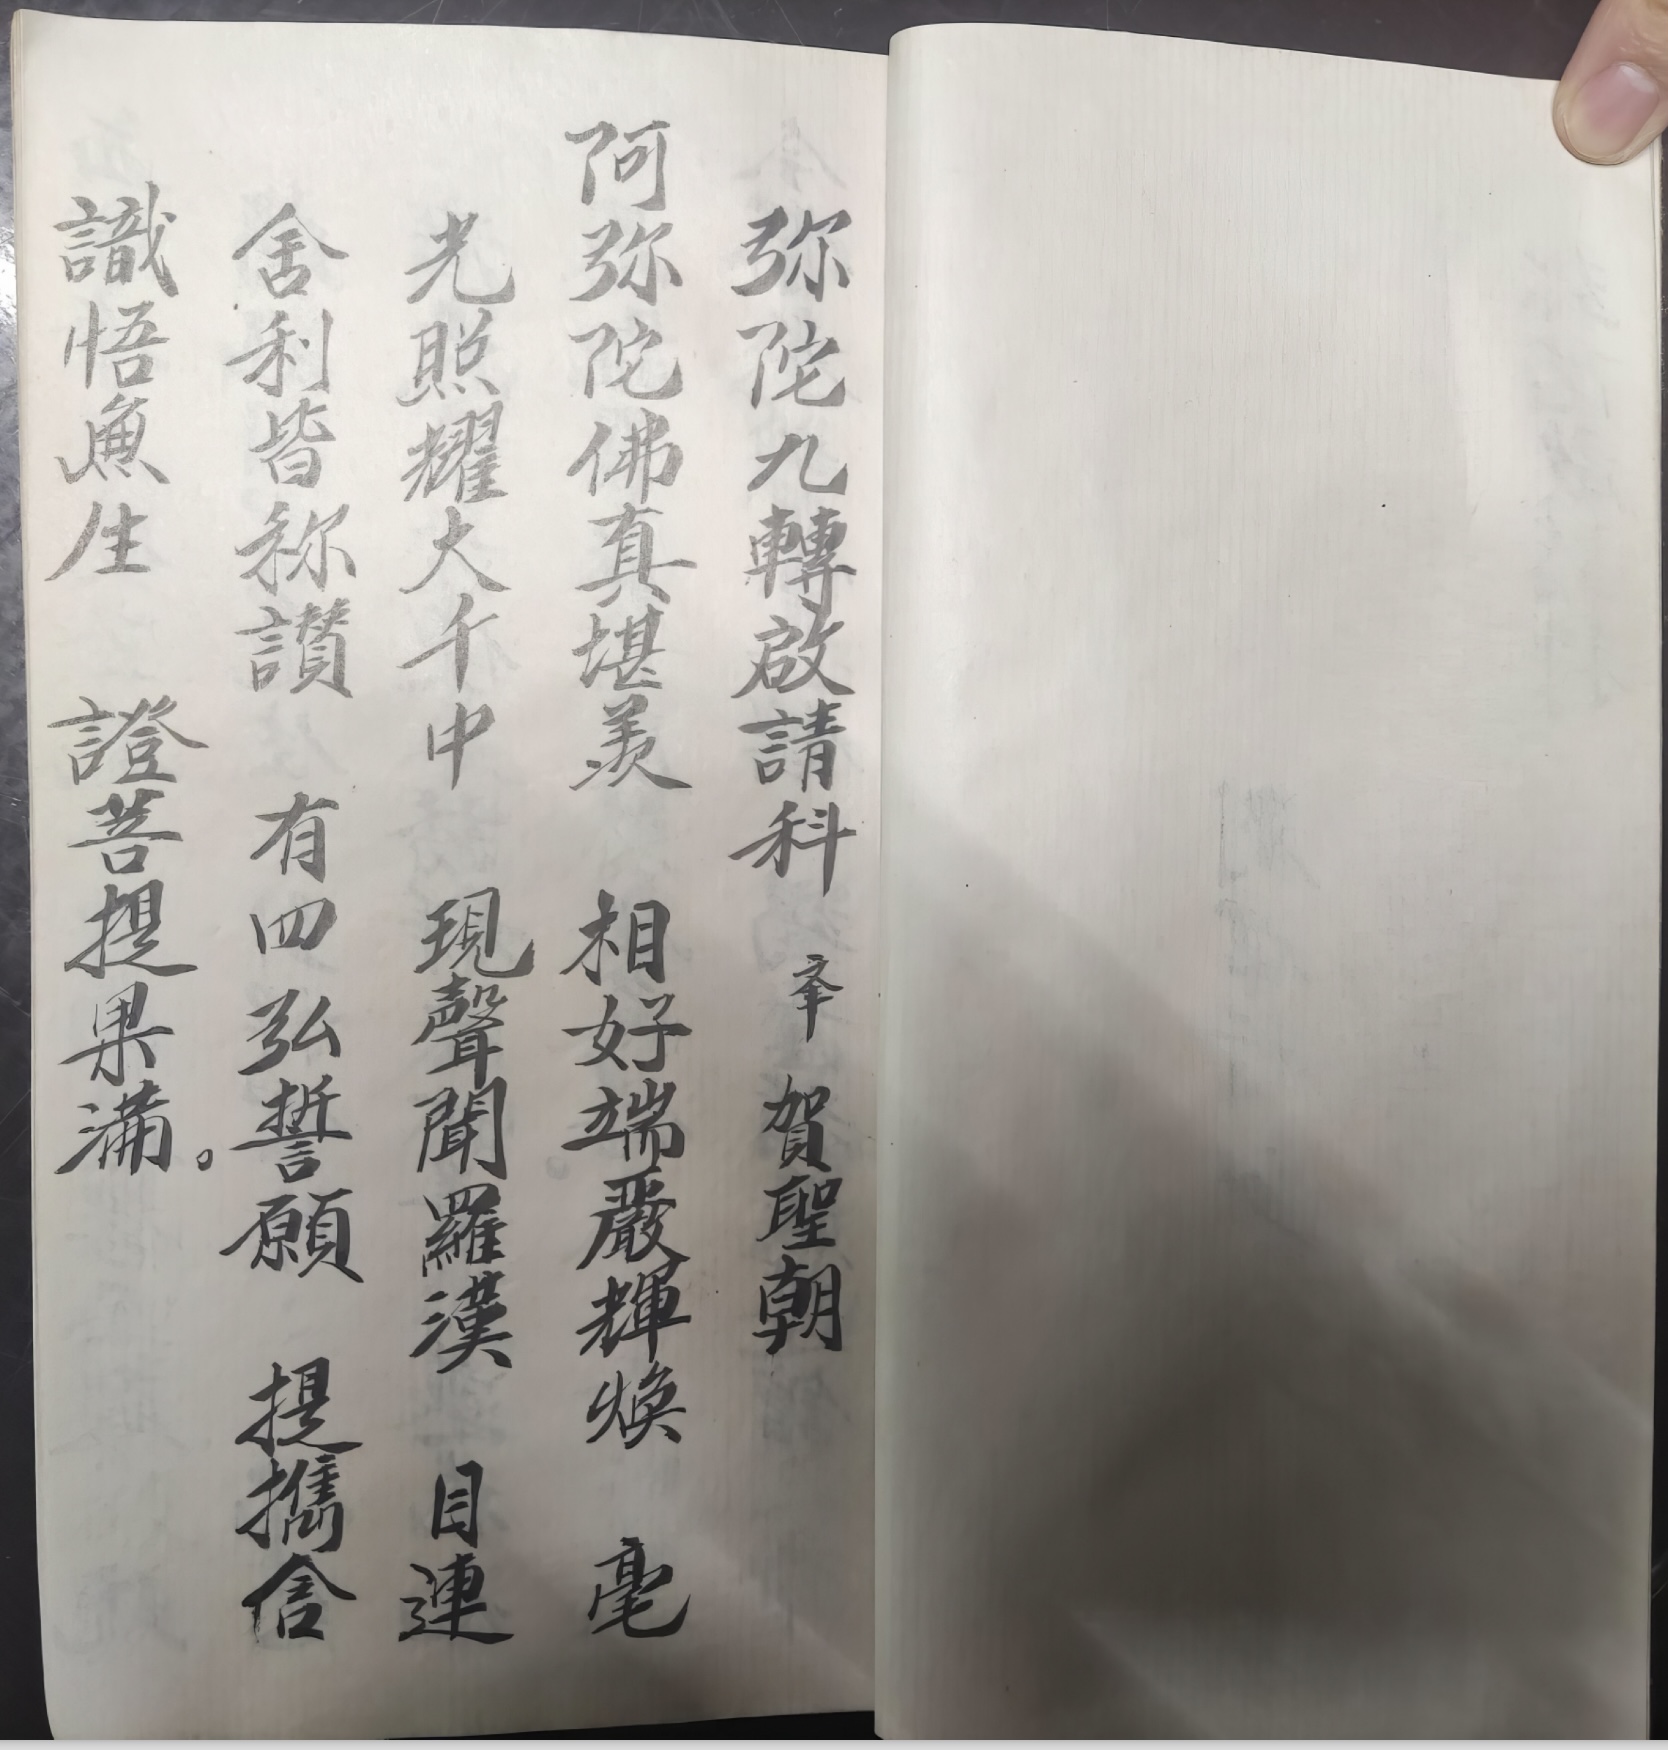 弥陀九轉啟請科 賀聖朝
阿弥陀佛真堪羡 相好端嚴輝煥 毫
光照耀大千中 現聲聞羅漢 目連
舍利皆称讃 有四弘誓願 提携含
識悟無生 證菩提果滿。